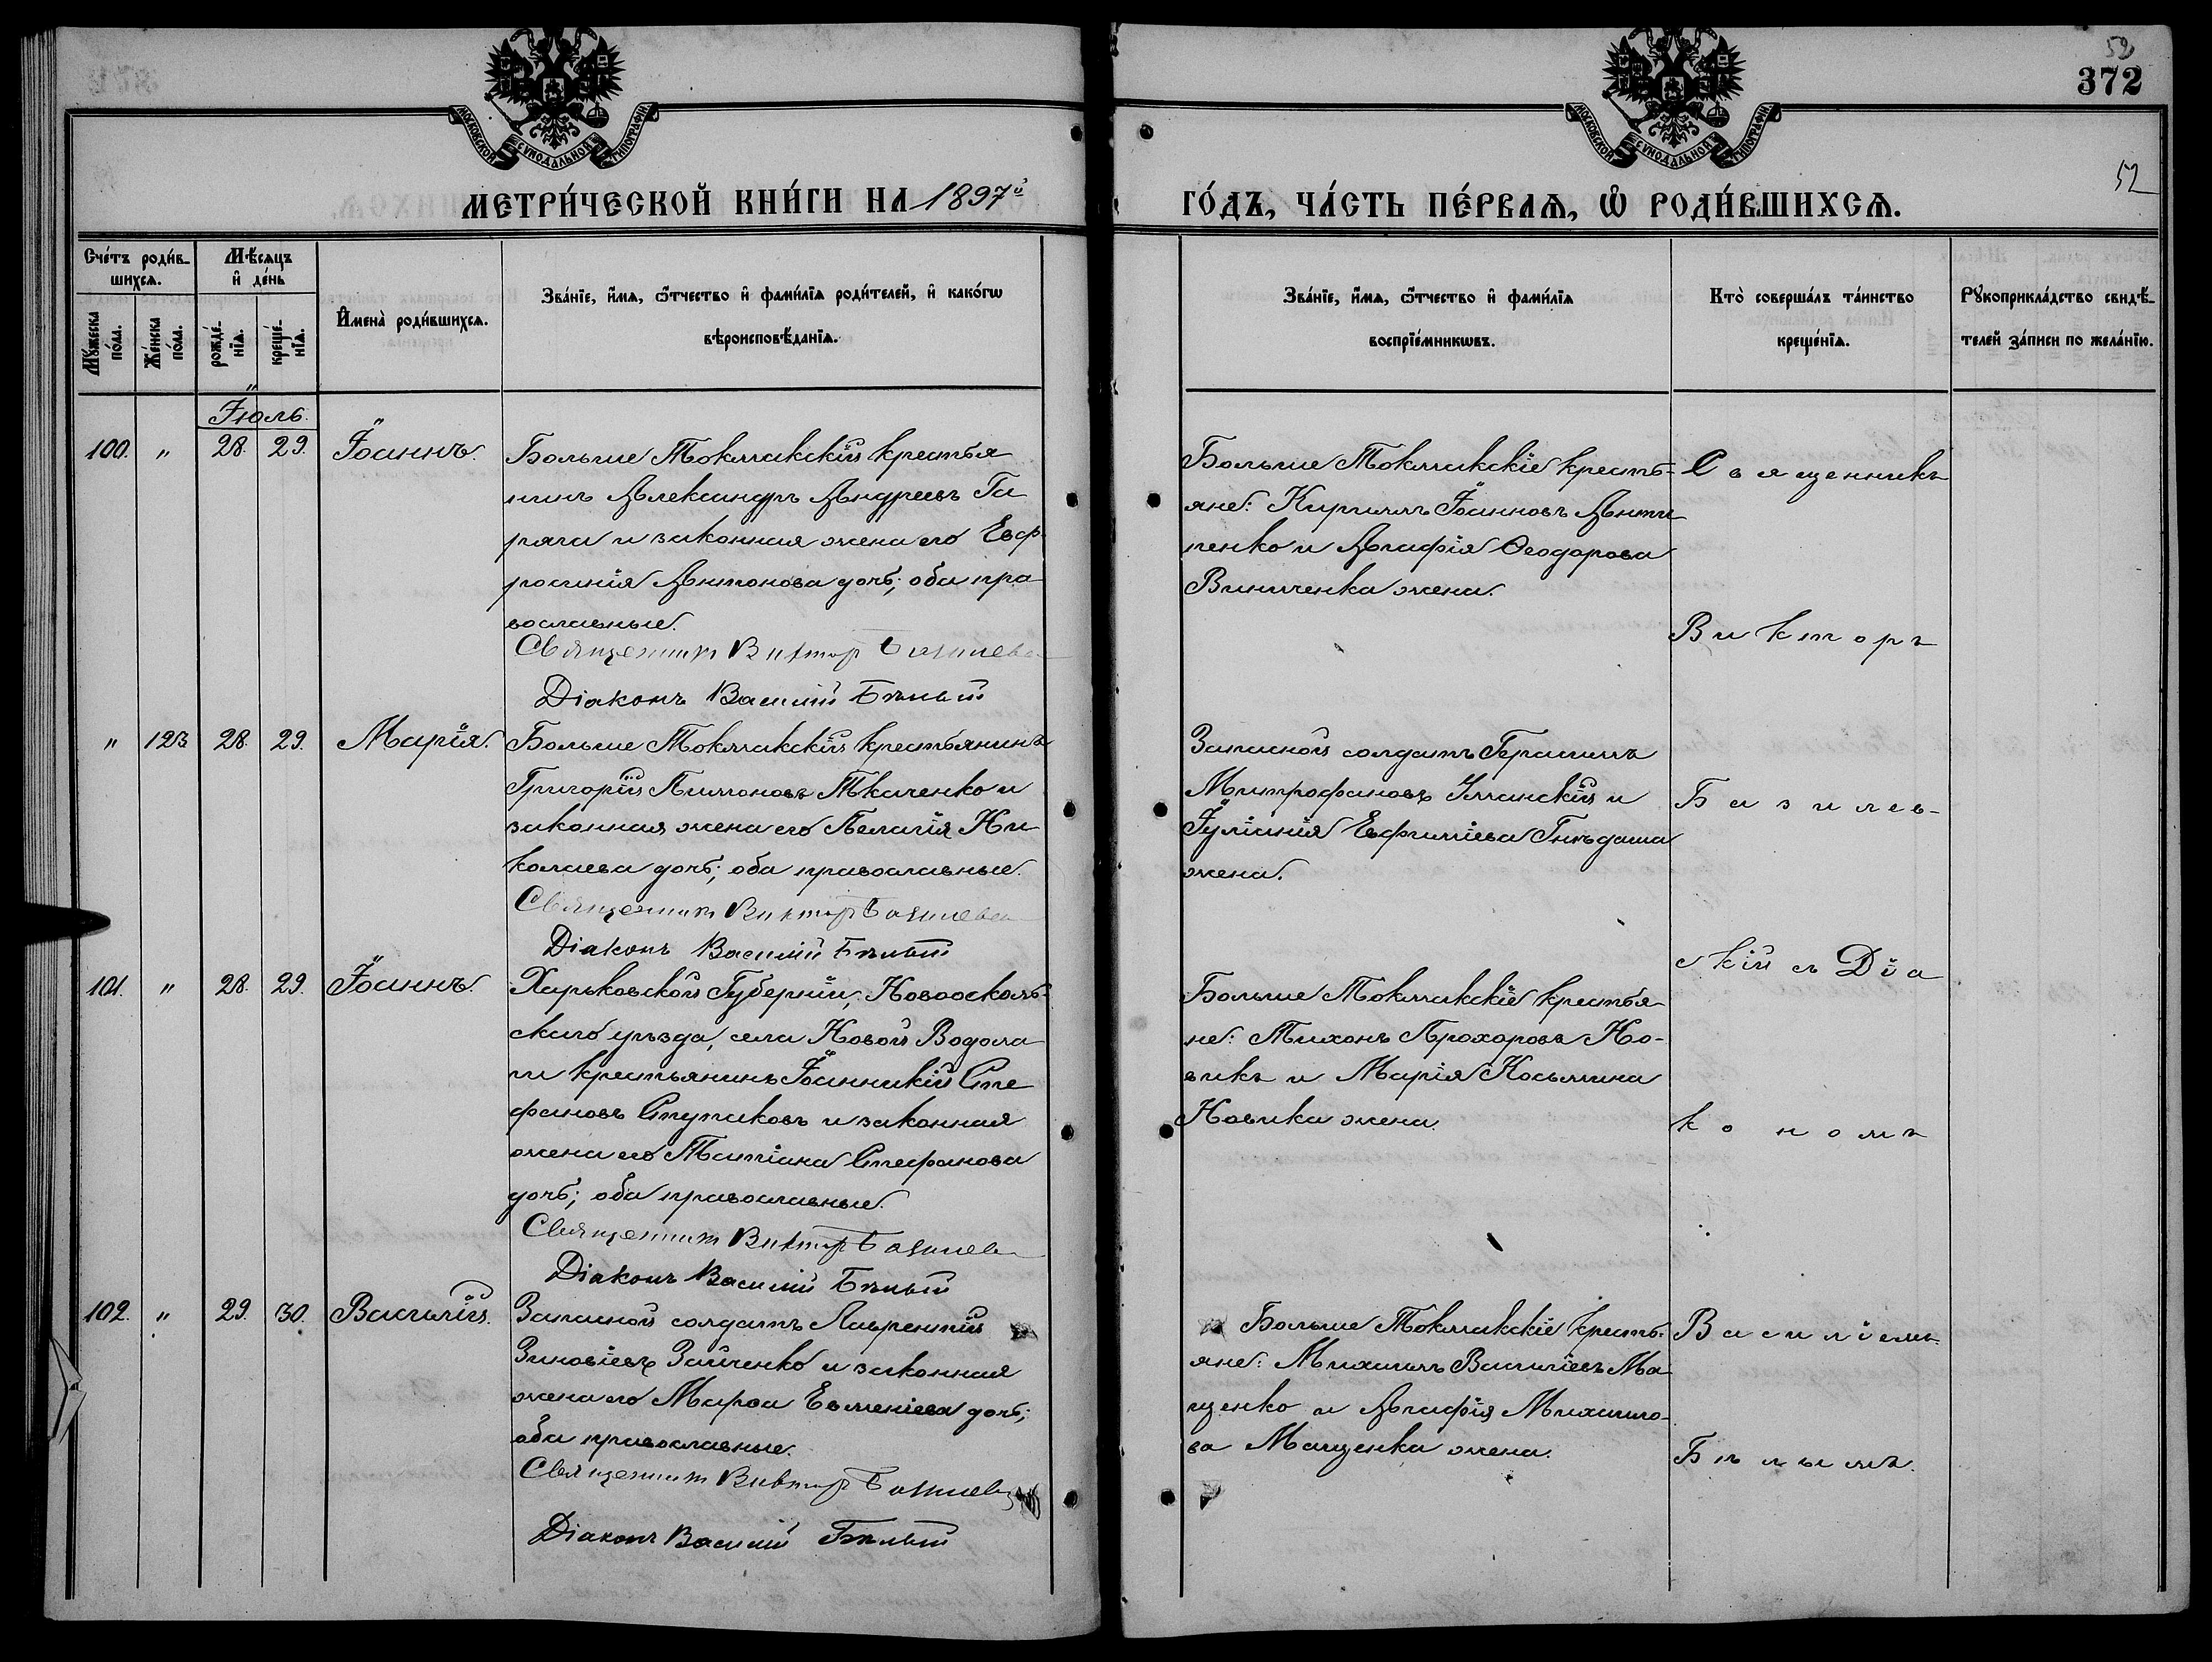 52
372
52
МОСКОВСКОЙ СѴНОДАЛЬНОЙ ТИПОГРАФІИ
МОСКОВСКОЙ СѴНОДАЛЬНОЙ ТИПОГРАФІИ
МЕТРИ́ЧЕСКОЙ КНИ́ГИ НА 1897й
ГО́ДЪ, ЧА́СТЬ ПЕ́РВАѦ, Ѡ҆ РОДИ́ВШИХСѦ.
Сче́тъ роди́в-
шихсѧ.
Мѣ́сяцъ
и҆ де́нь
Мꙋ́жеска по́ла.
Же́нска по́ла.
рожде́-
нїѧ.
креще́-
нїѧ.
И҆мена̀ роди́вшихсѧ.
Зва́нїе, и҆́мѧ, ѻ҆́тчество и҆ фами́лїѧ роди́телей, и҆ како́гѡ
вѣроисповѣ́данїѧ.
Зва́нїе, и҆́мѧ, ѻ҆́тчество и҆ фами́лїѧ
воспрїе́мникѡвъ.
Кто̀ соверша́лъ та́инство
креще́нїѧ.
Рꙋкоприкла́дство свидѣ́-
телей за́писи по жела́нїю.
Іюль.
100. " 28. 29. Іоаннъ.
Больше Токмакскій крестья
нинъ Александръ Андреевъ Га
ряга и законная жена его Евф
росинія Антонова дочь; оба пра
вославные.
Священник Виктор Базилев
Діаконъ Василій Бѣлый
Больше Токмакскіе кресть-
яне: Кириллъ Іоанновъ Анти
пенко и Агафія Ѳеодорова
Виниченка жена.
Священникъ
Викторъ
" 123 28. 29. Марія.
Больше Токмакскій крестьянинъ
Григорій Пимоновъ Ткаченко и
законная жена его Пелагія Ни
колаева дочь; оба православные.
Священник Виктор Базилев
Діаконъ Василій Бѣлый
Запасной солдатъ Герасимъ
Митрофановъ Уманскій и
Іуліанія Евфиміева Гнѣдаша
жена.
Базилев-
скій съ Діа
101. " 28. 29. Іоаннъ.
Харьковской Губерніи, Новоосколь-
скаго уѣзда, села Новой Водола
ги крестьянинъ Іоанникій Сте
фановъ Ступаковъ и законная
жена его Татіана Стефанова
дочь; оба православные.
Священник Виктор Базилев
Діаконъ Василій Бѣлый
Больше Токмакскіе крестья
не: Тихонъ Прохоровъ Но-
викъ и Марія Косьмина
Новика жена.
кономъ
102. " 29. 30. Василій.
Запасной солдатъ Лаврентій
Зиновіевъ Зайченко и законная
жена его Марѳа Евменіева дочь;
оба православные.
Священник Виктор Базилев
Діаконъ Василій Бѣлый
Больше Токмакскіе кресть-
яне: Михаилъ Василіевъ Ма
щенко и Агафія Михаило-
ва Мащенка жена.
Василіемъ
Бѣлымъ.